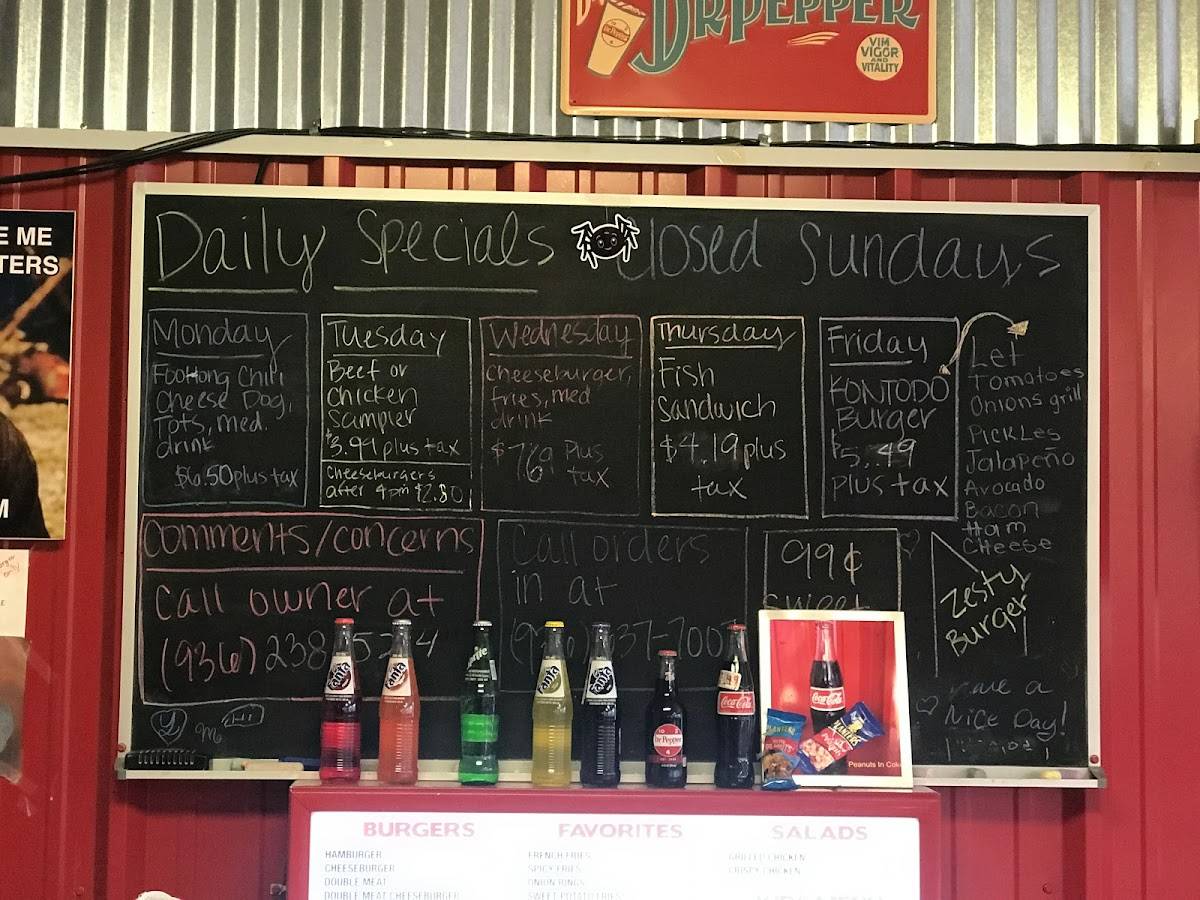 DRPEPPER
VIM
VIGOR
AND
VITALITY
E ME
TERS
M
Daily Specials Closed Sundays
Monday
Footlong Chili
Cheese Dog,
Tots, med.
drink
$6.50 plus tax
Tuesday
Beef or
Chicken
Sampler
$3.99 plus tax
Cheeseburgers
after 4pm $2.80
Wednesday
Cheeseburger,
fries, med
drink
$7.69 Plus
tax
Thursday
Fish
Sandwich
$4.19 plus
tax
Friday
KONTODO
Burger
$5.49
plus tax
Let
Tomatoes
Onions grill
Pickles
Jalapeño
Avocado
Bacon
Ham
Cheese
Zesty
Burger
Comments/concerns
Call owner at
(936) 238
Call orders
in at
99¢
Sweet
Nice Day!
Fanta
Fanta
Sprite
Fanta
Fanta
Dr Pepper
Coca-Cola
Coca-Cola
PLANTERS
PLANTERS
Peanuts In
BURGERS
HAMBURGER
CHEESEBURGER
DOUBLE MEAT
DOUBLE MEAT CHEESEBURGER
FAVORITES
FRENCH FRIES
SPICY FRIES
ONION RINGS
SWEET POTATO FRIES
SALADS
GRILLED CHICKEN
CRISPY CHICKEN